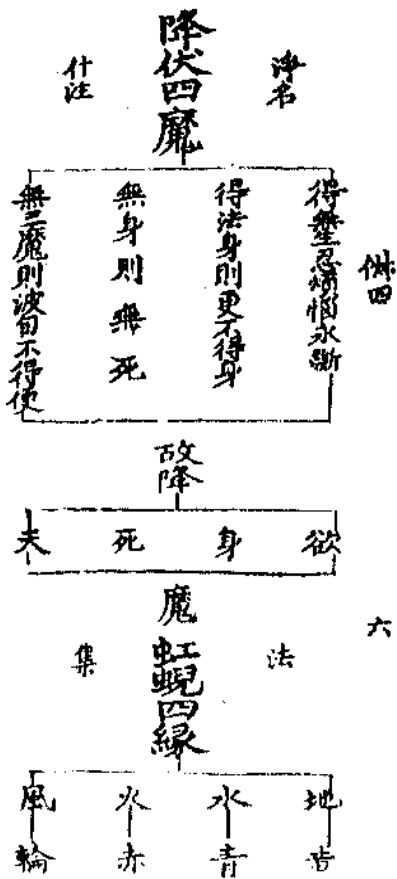 淨名
降伏四魔
什注
得無生忍煩惱永斷
得法身則更不得身
無身則無死
無三魔則波旬不得便
故降
欲 身 死 天
魔
六
法
虹蜺四縁
集
地 水 火 風
青 赤 輪